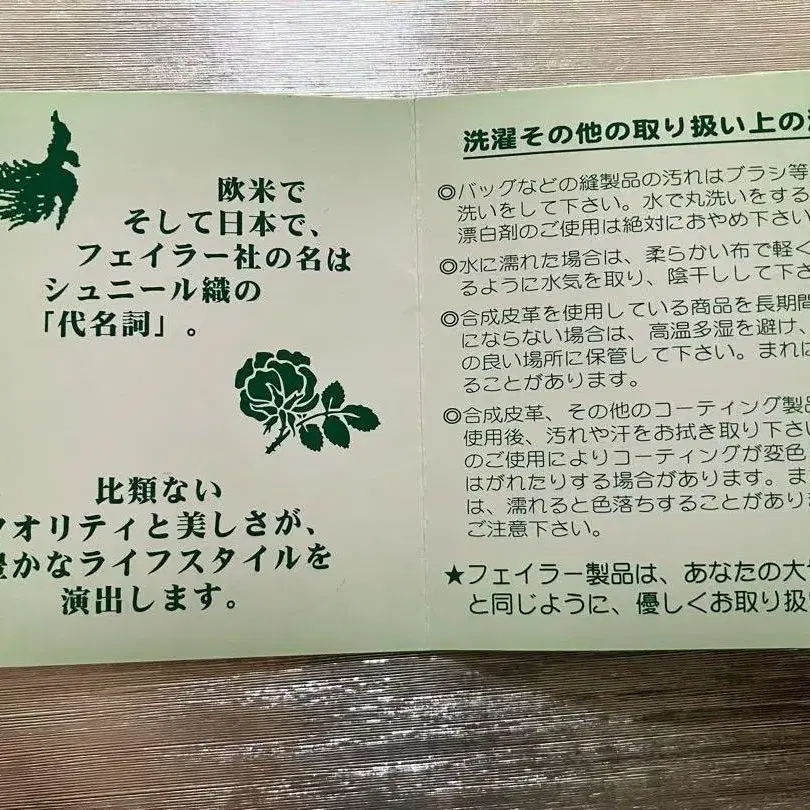 欧米で
そして日本で、
フェイラー社の名は
シュニール織の
「代名詞」。
比類ない
クオリティと美しさが、
豊かなライフスタイルを
演出します。
洗濯その他の取り扱い上の
◎バッグなどの縫製品の汚れはブラシ等
洗いをして下さい。水で丸洗いをする
漂白剤のご使用は絶対におやめ下さい
◎水に濡れた場合は、柔らかい布で軽く
るように水気を取り、陰干しして下さ
◎合成皮革を使用している商品を長期間
にならない場合は、高温多湿を避け、
の良い場所に保管して下さい。まれに
ることがあります。
◎合成皮革、その他のコーティング製品
使用後、汚れや汗をお拭き取り下さい
のご使用によりコーティングが変色
はがれたりする場合があります。ま
は、濡れると色落ちすることがありま
ご注意下さい。
★フェイラー製品は、あなたの大切
と同じように、優しくお取り扱い